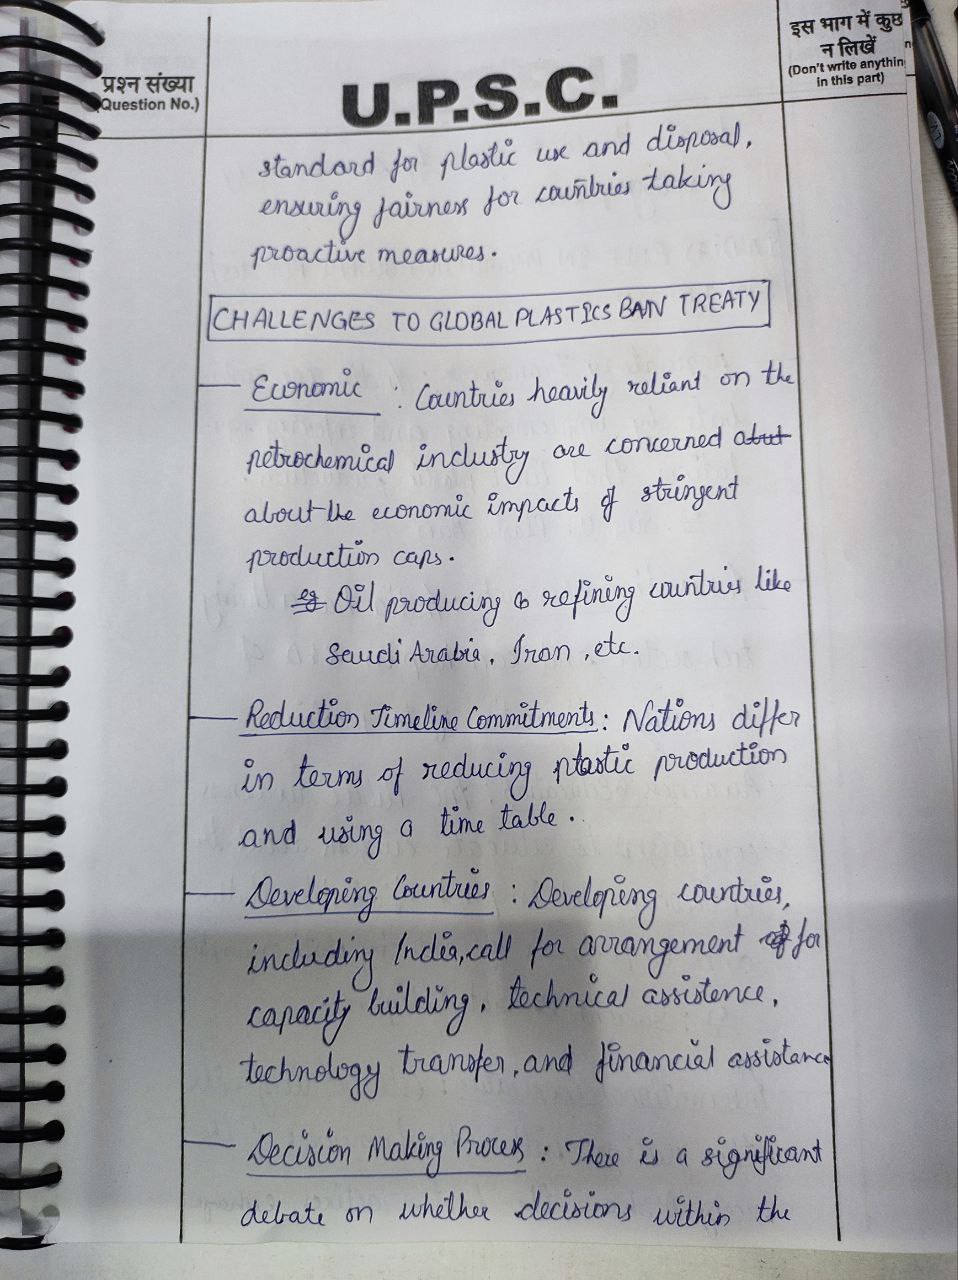 प्रश्न संख्या
(Question No.)
U.P.S.C.
इस भाग में कुछ
न लिखें
(Don't write anythin
in this part)
standard for plastic use and disposal,
ensuring fairness for countries taking
proactive measures.
CHALLENGES TO GLOBAL PLASTICS BAN TREATY
Economic : Countries heavily reliant on the
petrochemical industry are concerned abut
about the economic impacts of stringent
production caps.
eg Oil producing & refining countries like
Saudi Arabia, Iran, etc.
Reduction Timeline Commitments : Nations differ
in terms of reducing plastic production
and using a time table.
Developing Countries : Developing countries,
including India, call for arrangement of for
capacity building, technical assistence,
technology transfer, and financial assistance
Decision Making Process : There is a significant
debate on whether decisions within the